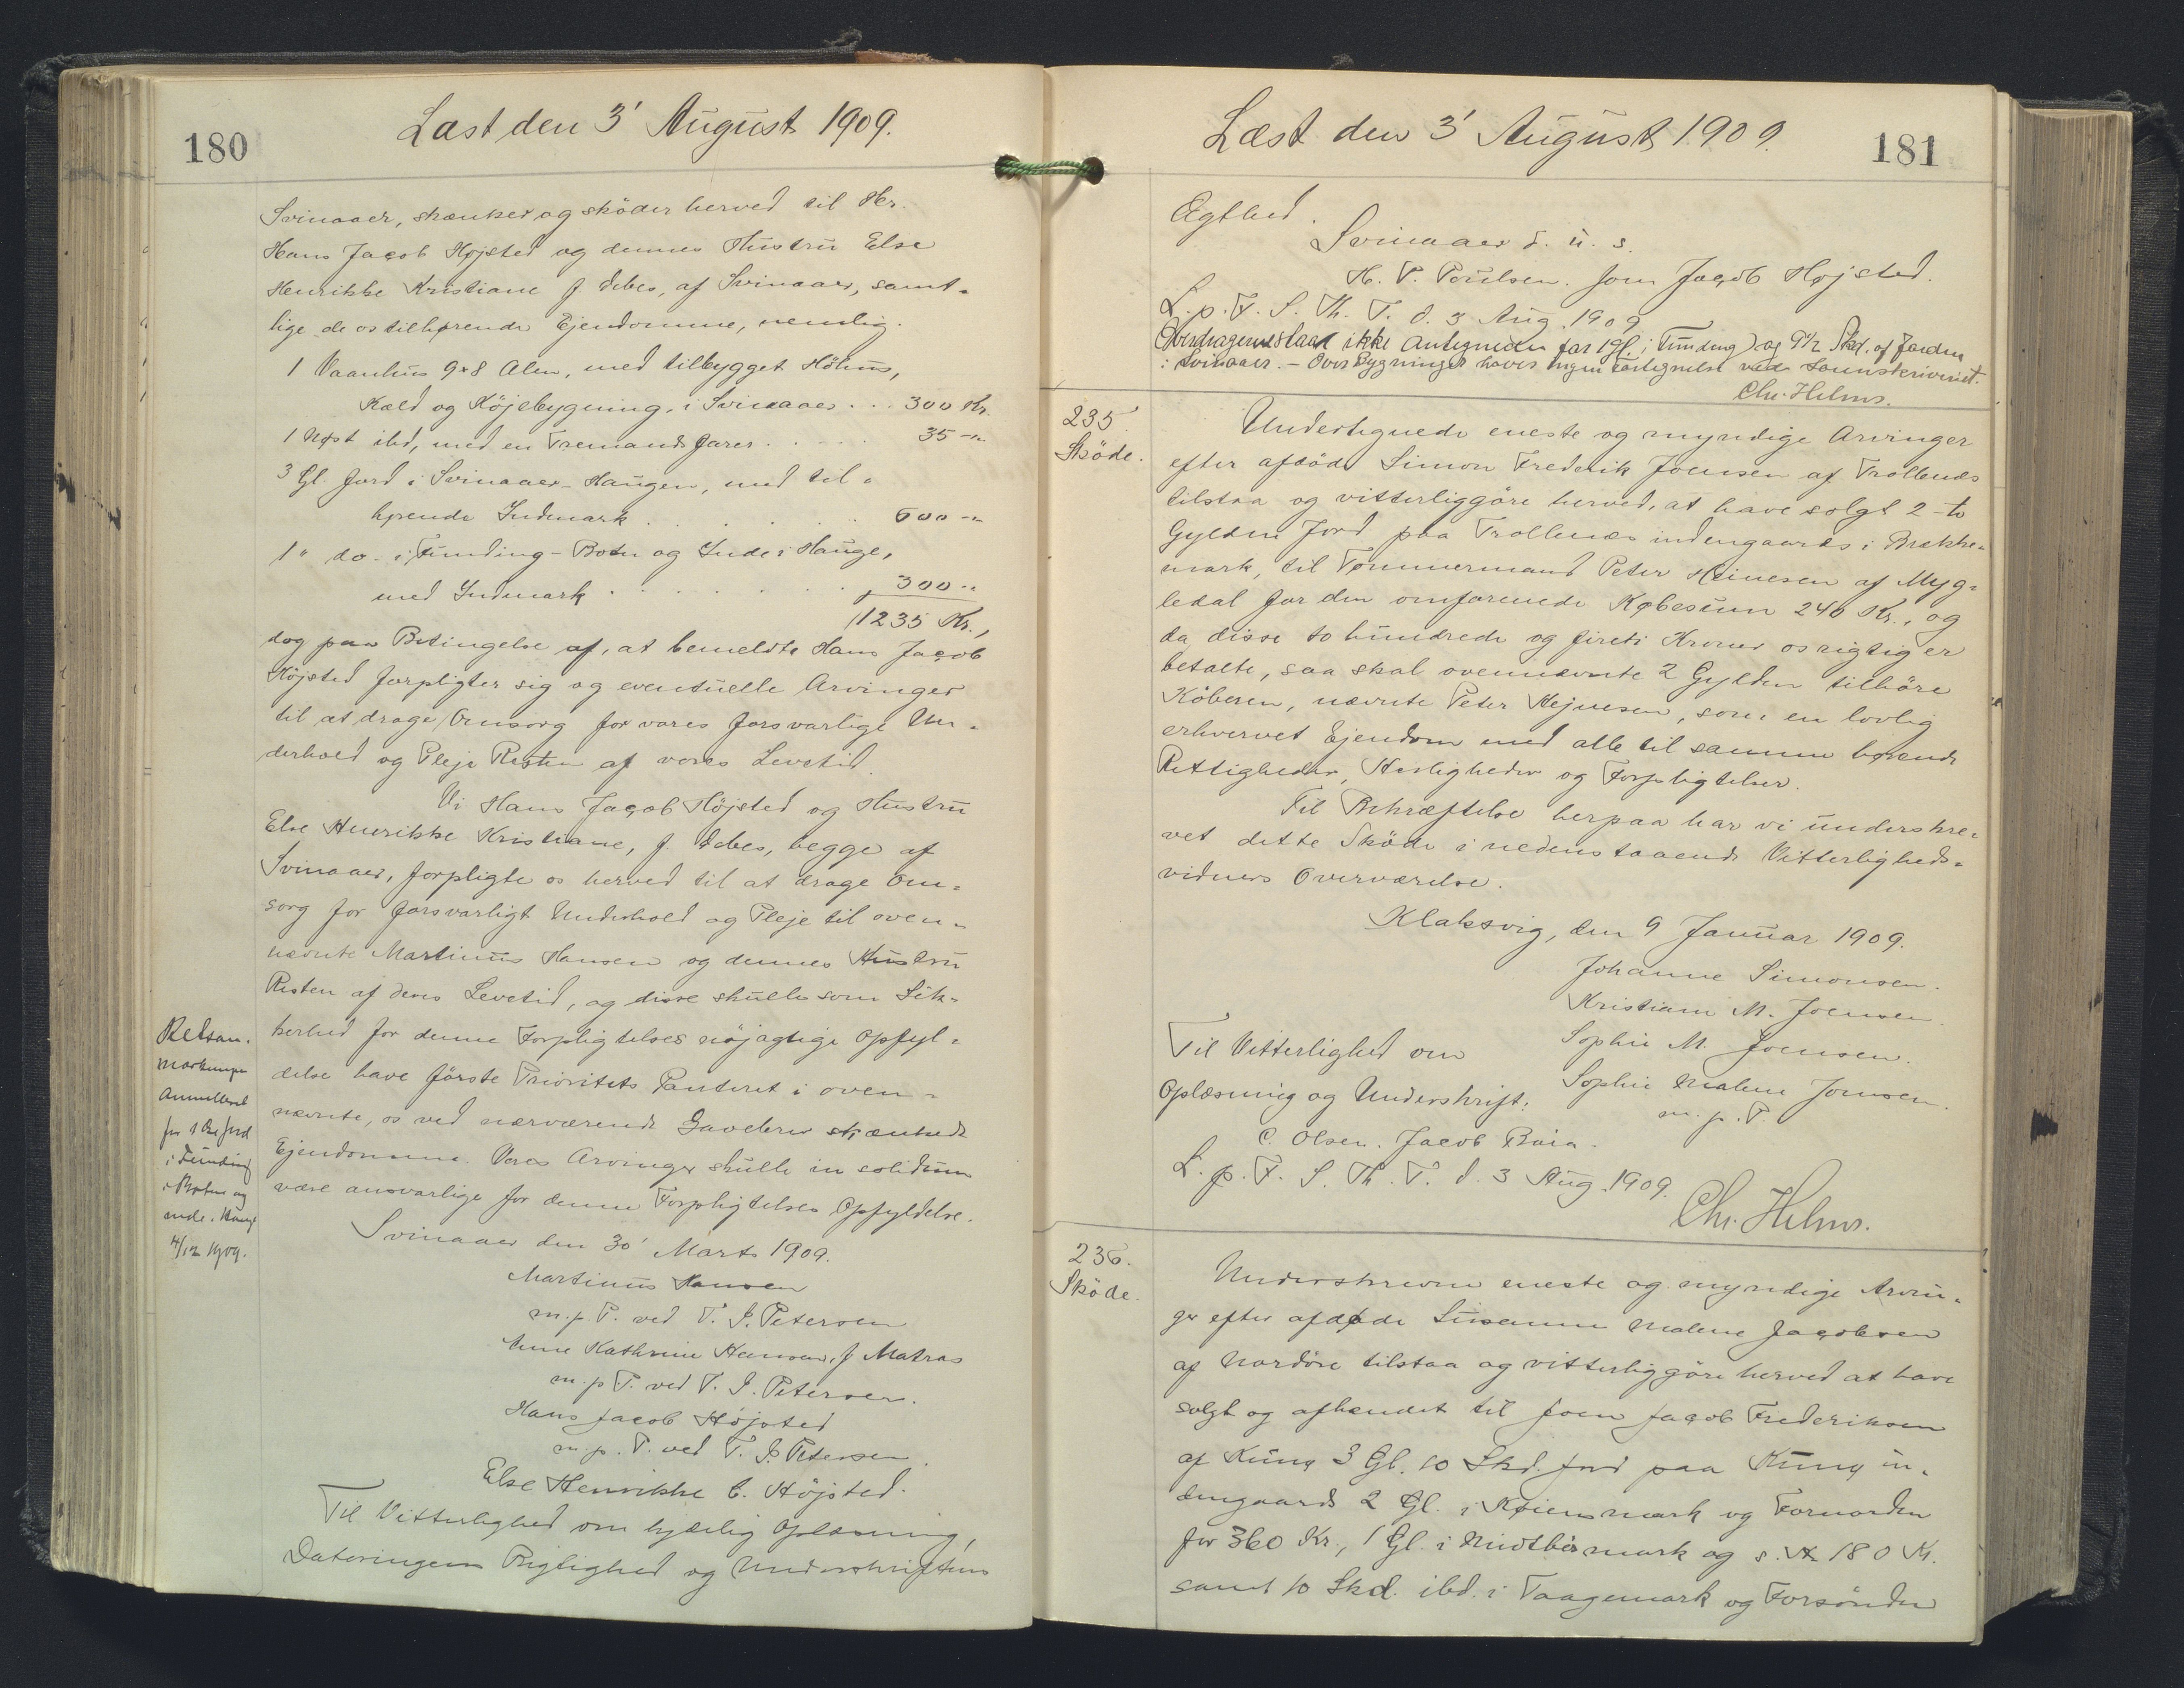 180
Læst den 3' August 1909.
Svinaaer, skænker og sköder herved til Hr.
Hans Jacob Højsted og dennes Hustru Else
Henrikke Kristiane f. Debes, af Svinaaer, samt-
lige de os tilhørende Ejendomme, nemlig.
1 Vaanhus 9x8 Alen, med tilbygget Höhus,
Kæld og Köjebygning, i Svinaaer . . . 300 Kr.
1 Nøst ibd, med en Tremands farer . . . . 35 -"-
3 Gl. Jord i Svinaaer-Haugen, med til-
hørende Indmark . . . . . . 600 -"-
1 " do - i Funding-Botn og Inde i Hauge,
med Indmark . . . . . . . 300 -"-
1235 Kr.,
dog paa Betingelse af, at bemeldte Hans Jacob
Højsted forpligter sig og eventuelle Arvinger
til at drage Omsorg for vores forsvarlige Un-
derhold og Pleje Resten af vores Levetid.
Vi Hans Jacob Højsted og Hustru
Else Henrikke Kristiane, f. Debes, begge af
Svinaaer, forpligte os herved til at drage Om-
sorg for forsvarligt Underhold og Pleje til oven-
nævnte Martinus Hansen og dennes Hustru
Resten af deres Levetid, og disse skulle som Sik-
kerhed for denne Forpligtelses nöjagtige Opfyl-
delse have förste Prioritets Panteret i oven-
nævnte, os ved nærværende Gavebrev skænkede
Ejendomme. Vores Arvinger skulle in solidum
være ansvarlige for denne Forpligtelses Opfyldelse.
Retsan-
mærkningen
Annulleret
for 1 Gl. Jord
i Funding
i Botne og
inde i Hauge
4/12 1909.
Svinaaer den 30' Marts 1909.
Martinus Hansen
m. p. P. ved P. J. Petersen
Anne Kathrine Hansen, f Matras
m. p P. ved P. J. Petersen.
Hans Jacob Höjsted
m. p. P. ved P. J. Petersen.
Else Henrikke C. Höjsted.
Til Vitterlighed om tydelig Oplæsning,
Dateringens Rigtighed og Underskriftens
181
Læst den 3' August 1909.
Ægthed.
Svinaaer d. u. s.
H. P. Poulsen. Joen Jacob Højsted.
L. p. F. S. Th. T. d. 3 Aug. 1909
Overdragerne staar ikke antegnede for 1 Gl. i Funding) og 9½ Skd. af Jorden
i Svinaaer. - Over Bygninger haves ingen Fortegnelse ved Sorenskriveriet.
Chr. Helms.
235.
Sköde.
Undertegnede eneste og myndige Arvinger
efter afdöde Simon Frederik Joensen af Trollenæs
tilstaa og vitterliggöre herved, at have solgt 2 - to
Gylden Jord paa Trollenæs indengaards i Brekke-
mark, til Tömmermand Peter Heinesen af Myg-
ledal for den omforenede Købesum 240 Kr., og
da disse to hundrede og fireti Kroner os rigtig er
betalte, saa skal ovennævnte 2 Gylden tilhöre
Köberen, nævnte Peter Hejnesen, som en lovlig
erhvervet Ejendom med alle til samme hørende
Rettigheder, Herligheder og Forpligtelser.
Til Bekræftelse herpaa har vi underskre-
vet dette Sköde i nedenstaaende Vitterligheds-
vidners Overværelse.
Klaksvig, den 9 Januar 1909.
Johanne Simonsen.
Kristiane M. Joensen
Sophie M. Joensen.
Sophie Malene Joensen.
m. p. P.
Til Vitterlighed om
Oplæsning og Underskrift:
C. Olsen. Jacob Baia.
L. p. F. S. Th. T. d. 3 Aug. 1909.
Chr. Helms.
236.
Sköde.
Underskrevne eneste og myndige Arvin-
ger efter afdøde Susanne Malene Jacobsen
af Nordöre tilstaa og vitterliggöre herved at have
solgt og afhændet til Joen Jacob Frederiksen
af Kunø 3 Gl. 10 Skd. Jord paa Kunø in-
dengaards 2 Gl. i Köiensmark og Fornorden
for 360 Kr., 1 Gl. i Midtbörmark og s. St. 180 Kr.
samt 10 Skd. ibd. i Taagemark og Forsönden